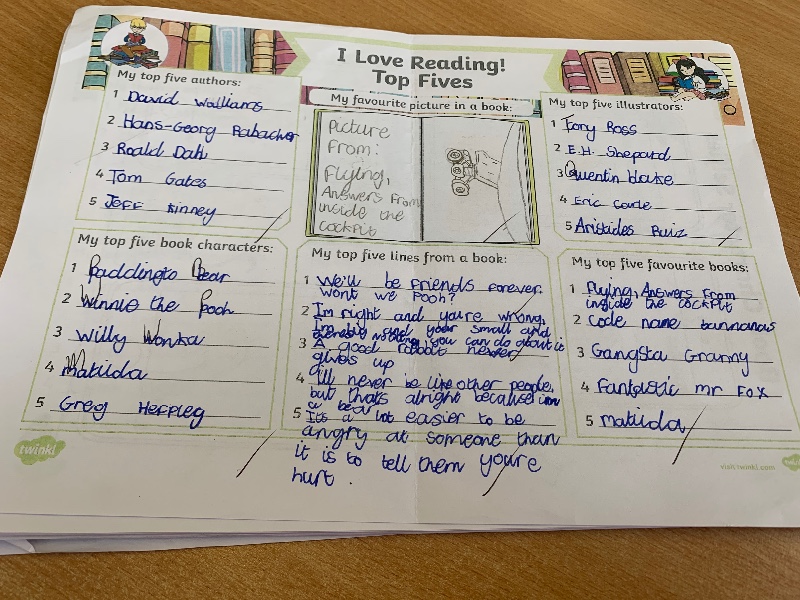 I Love Reading!
Top Fives
My top five authors:
1 David Walliams
2 Hans-Georg Rabacher
3 Roald Dahl
4 Tom Gates
5 Jeff Kinney
My favourite picture in a book:
Picture
From:
Flying,
Answers From
inside the
cockpit
My top five illustrators:
1 Tony Ross
2 E.H. Shepard
3 Quentin blake
4 Eric Carle
5 Aristides Ruiz
My top five book characters:
1 Paddingto Bear
2 Winnie the Pooh
3 Willy Wonka
4 Matilida
5 Greg Heffleg
My top five lines from a book:
1 We'll be friends forever.
wont we Pooh?
2 Im right and you're wrong,
Im big and your small and
nothing you can do about it
3 A good never
gives up
4 I'll never be like other people,
but thats alright because im
a bear
5 It's a lot easier to be
angry at someone than
it is to tell them you're
hurt.
My top five favourite books:
1 Flying, Answers From
inside the cockpit
2 Code name bannanas
3 Gangsta Granny
4 Fantastic mr Fox
5 Matilida
twinkl
visit twinkl.com